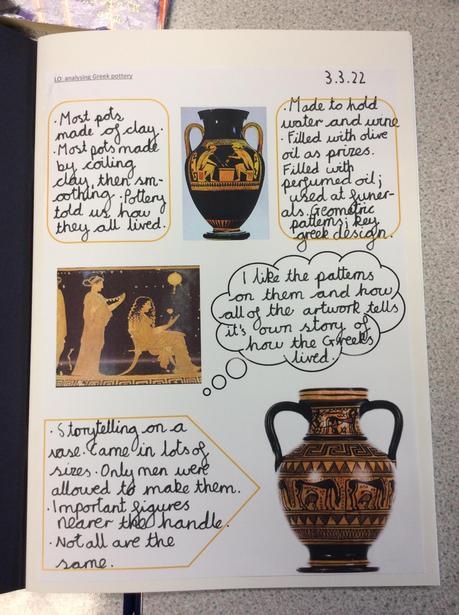 LO: analysing Greek pottery
3.3.22
• Most pots
made of clay.
• Most pots made
by coiling
clay, then sm-
oothing. • Pottery
told us how
they all lived.
• Made to hold
water and wine
• Filled with olive
oil as prizes.
Filled with
perfumed oil;
used at funer-
als. Geometric
patterns; key
greek design.
I like the patterns
on them and how
all of the artwork tells
it's own story of
how the Greeks
lived.
• Storytelling on a
vase. Came in lots of
sizes. Only men were
allowed to make them.
• Important figures
nearer the handle.
• Not all are the
same.